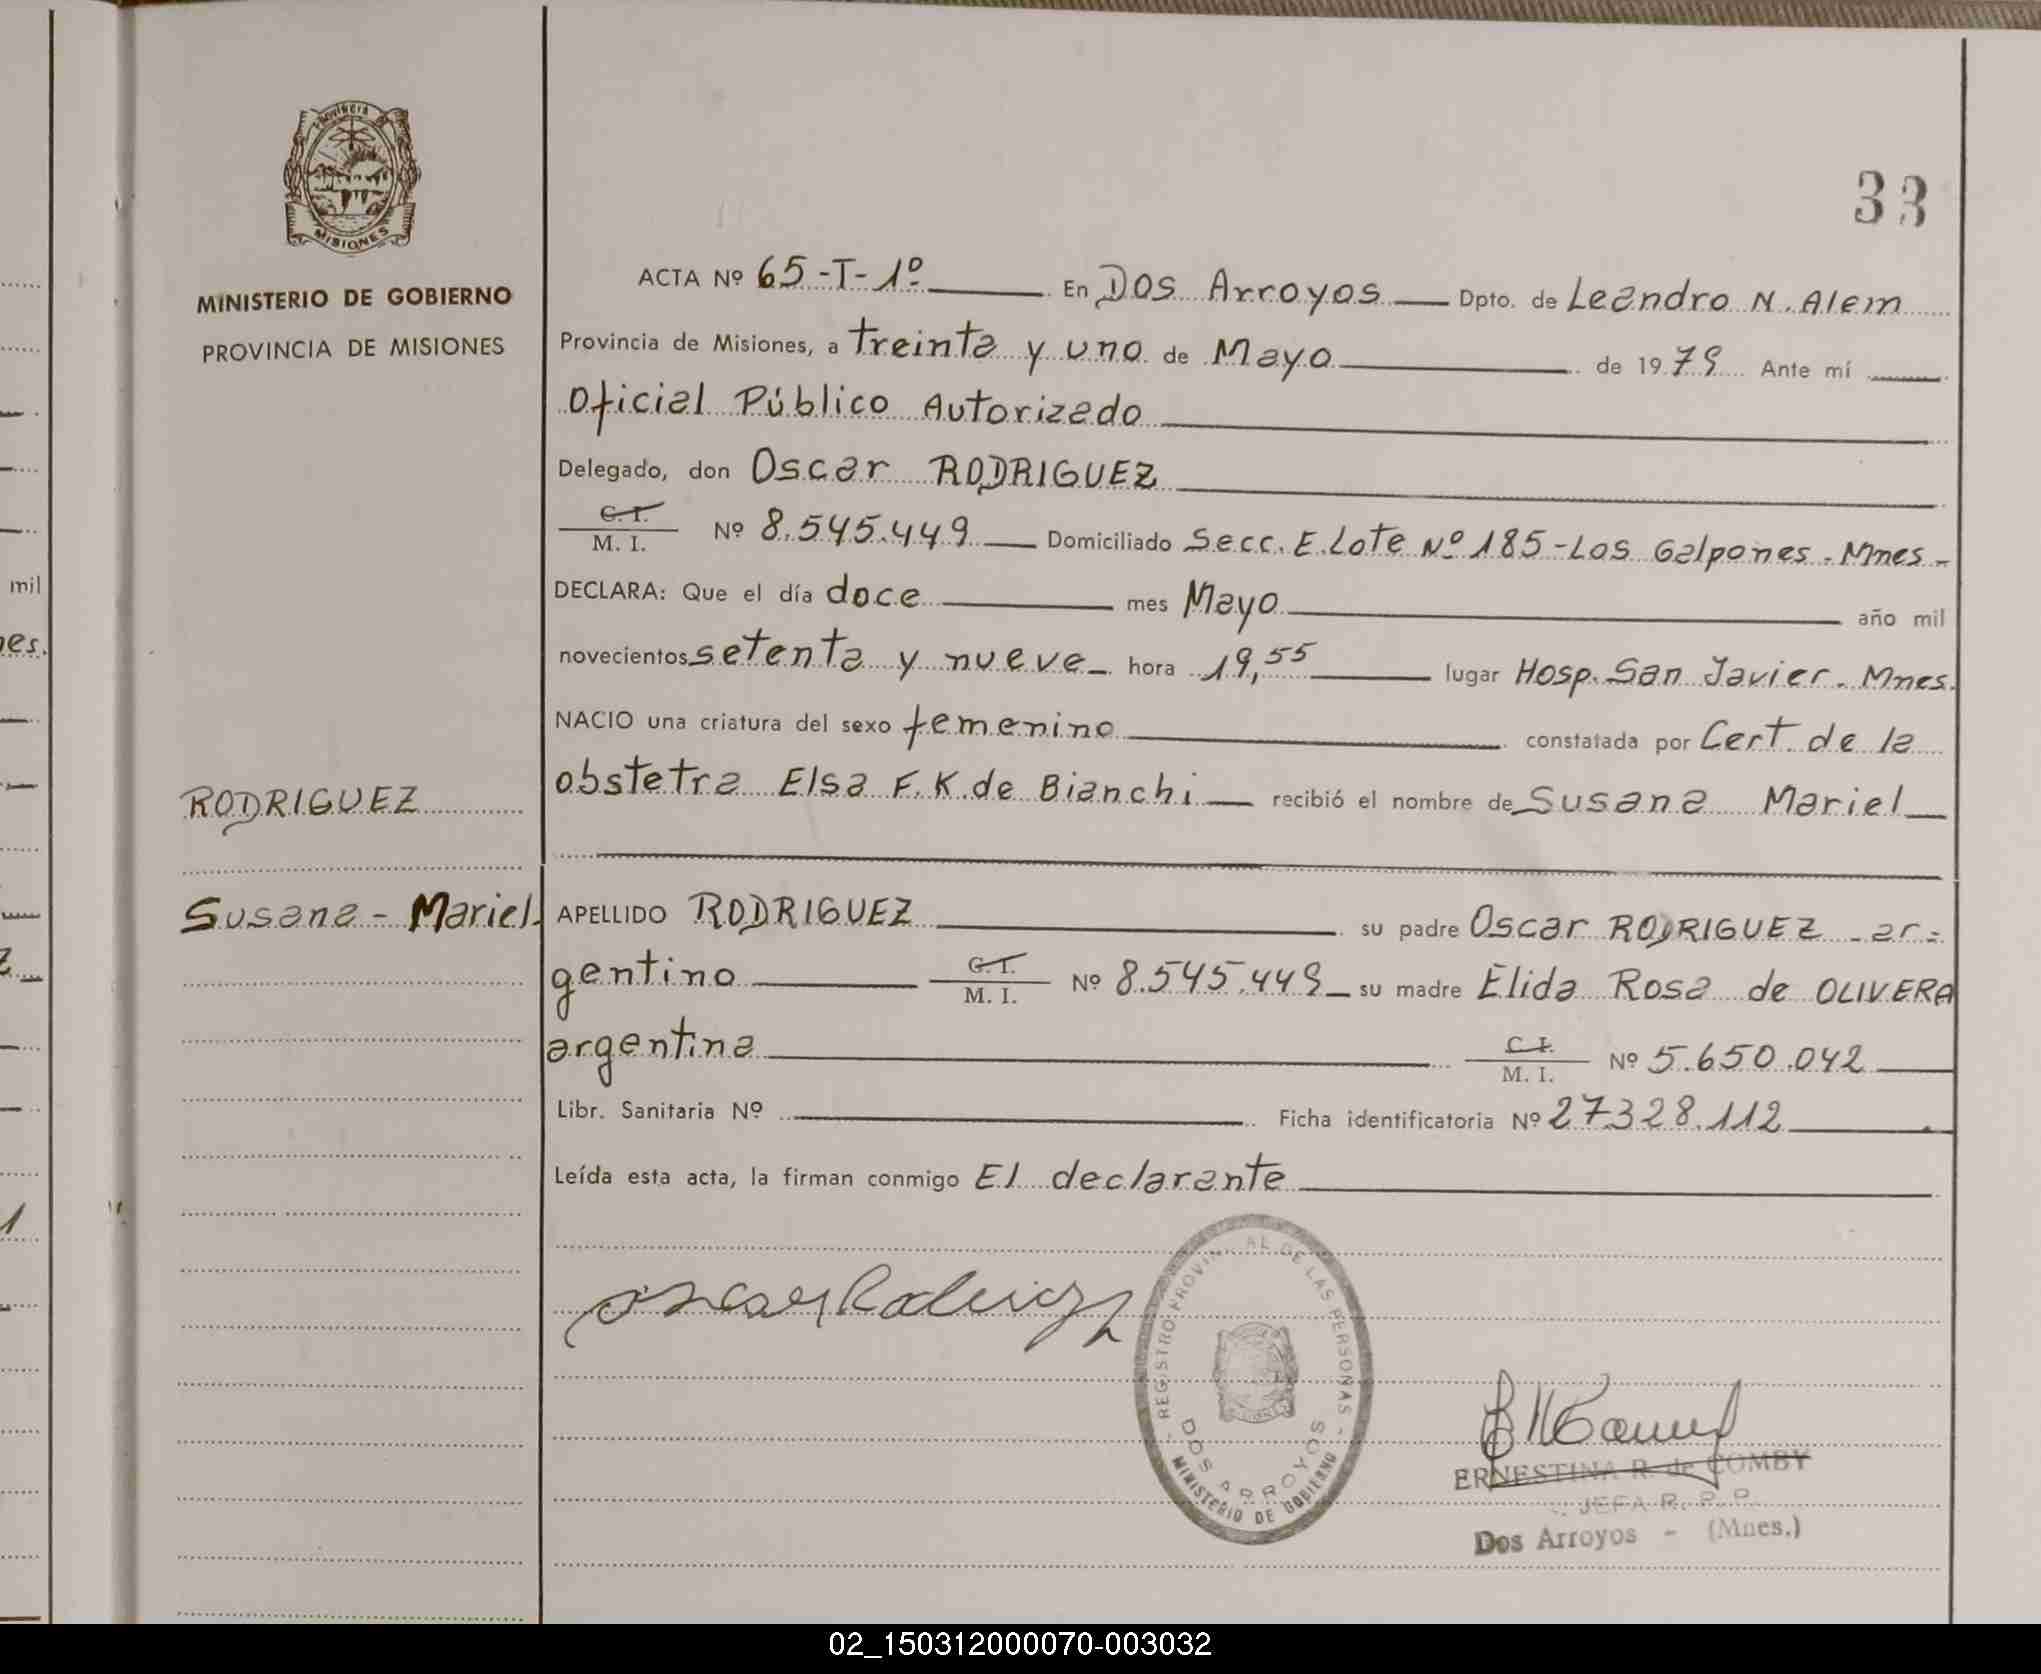 PROVINCIA
MISIONES
MINISTERIO DE GOBIERNO
PROVINCIA DE MISIONES
33
ACTA Nº 65-T-1º En DOS Arroyos Dpto. de Leandro N. Alem
Provincia de Misiones, a treinta y uno de Mayo de 1979 Ante mí
Oficial Público Autorizado
Delegado, don Oscar RODRIGUEZ
C. I.
M. I. Nº 8.545.449 Domiciliado Secc. E. Lote Nº 185-Los Galpones-Mnes-
DECLARA: Que el día doce mes Mayo año mil
novecientos setenta y nueve hora 19,55 lugar Hosp. San Javier. Mnes.
NACIO una criatura del sexo femenino constatada por Cert. de la
obstetra Elsa F. K. de Bianchi recibió el nombre de Susana Mariel
RODRIGUEZ
Susana - Mariel.
APELLIDO RODRIGUEZ su padre Oscar RODRIGUEZ - ar=
gentino C. I.
M. I. Nº 8.545.449 su madre Elida Rosa de OLIVERA
argentina C. I.
M. I. Nº 5.650.042
Libr. Sanitaria Nº Ficha identificatoria Nº 27.328.112
Leída esta acta, la firman conmigo El declarante
mil
nes.
1
Oscar Rodriguez
REGISTRO PROVINCIAL DE LAS PERSONAS
DOS ARROYOS
MINISTERIO DE GOBIERNO
ERNESTINA R. de COMBY
JEFA R. P. P.
Dos Arroyos - (Mnes.)
02_150312000070-003032